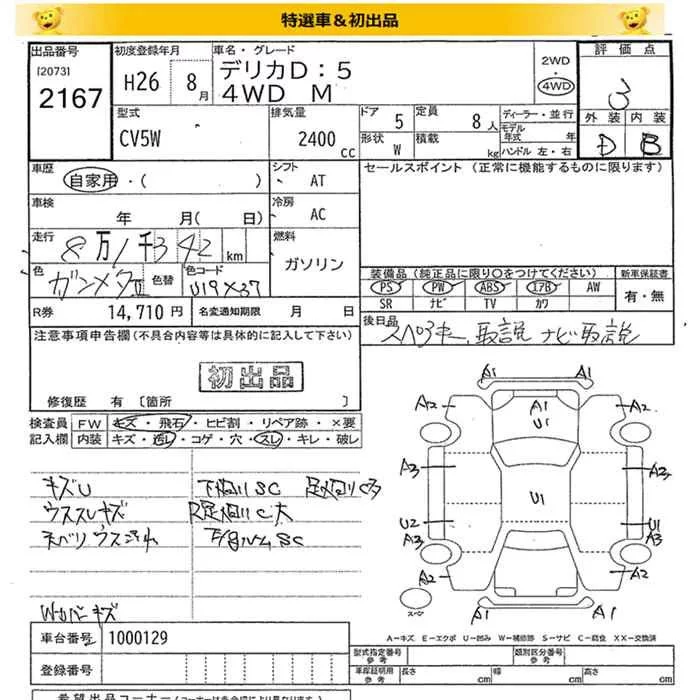 特選車&初出品
出品番号 初度登録年月 車名・グレード 評価点
[2073] 2167 H26 8月 デリカD:5 2WD 4WD 3
4WD M
型式 排気量 ドア 定員 ディーラー・並行 外装 内装
CV5W 2400cc 5 8人 モデル年式 年 D B
形状 W 積載 kg ハンドル 左・右
車歴 シフト セールスポイント (正常に機能するものに限ります)
自家用・( ) AT
車検 冷房
年 月( 日) AC
走行 8万1千342km 燃料
ガソリン
色 色替 色コード 装備品(純正品に限り○をつけてください) 新車保証書
ガンメタII U19×37 PS PW ABS エアB AW 有・無
SR ナビ TV カワ
R券 14,710円 名変通知期限 月 日
後日品 スペアキー、取説 ナビ取説
注意事項申告欄(不具合内容等は具体的に記入して下さい)
初出品
修復歴 有 [箇所 ]
検査員 FW キズ・飛石・ヒビ割・リペア跡・×要
記入欄 内装 キズ・汚レ・コゲ・穴・スレ・キレ・破レ
キズU 下廻りSC
ウススレキズ
ネバリ ウス汚れ
Wカバーキズ
A1 A1
A2 A1 A2
U1
A3 A3
U1
U2 U1
A3 A3
A2 A2
スペア A1 A1
A-キズ E-エクボ U-凹み W-補修跡 S-サビ C-腐食 XX-交換済
車台番号 1000129 型式指定番号 参考 類別区分番号 参考
登録番号 車庫証明用 参考 長さ cm 幅 cm 高さ cm
希望出品コーナー